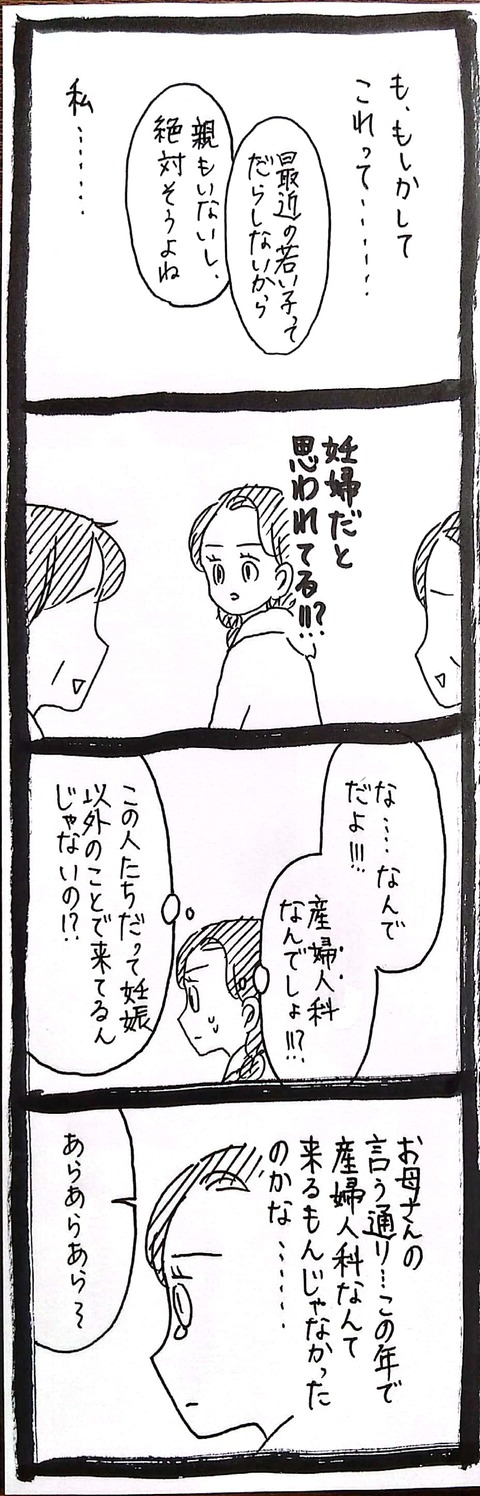 も、もしかして
これって‥‥‥
最近の若い子って
だらしないから
親もいないし、
絶対そうよね
私‥‥‥
妊婦だと
思われてる!!?
な‥‥なんで
だよ!!!
産婦人科
なんでしょ!!?
この人たちだって妊娠
以外のことで来てるん
じゃないの!?
お母さんの
言う通り…この年で
産婦人科なんて
来るもんじゃなかった
のかな‥‥‥
あらあらあら〜